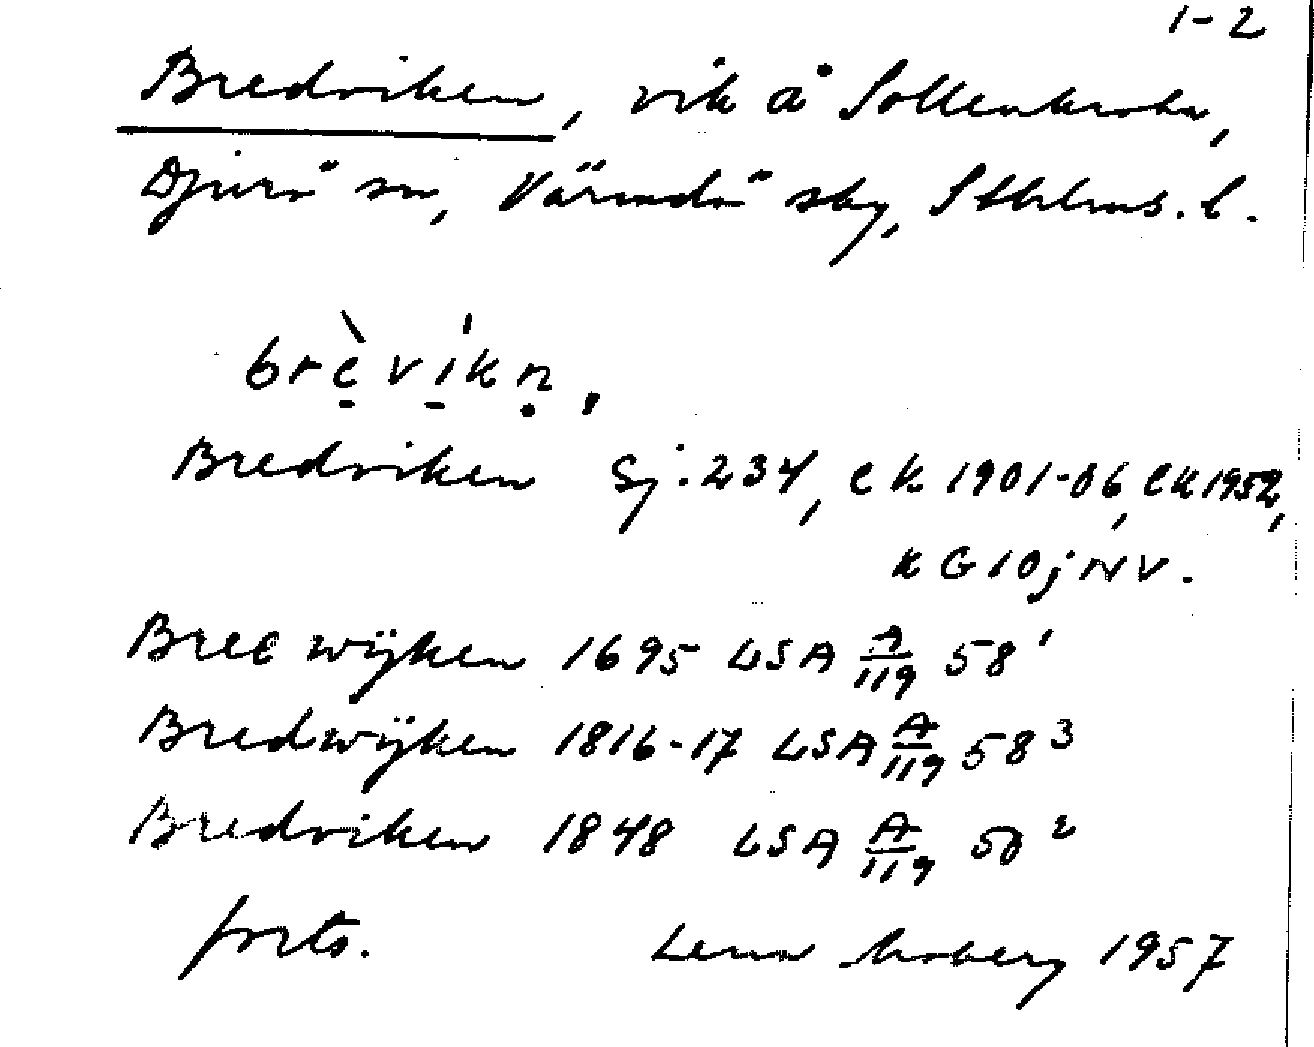 1-2
Bredviken, vik å Sollenkroka,
Djurö sn, Värmdö sky, Sthlms. l.
brèvíkn,
Bredviken Sj. 234, ek 1901-06, ek 1952,
k G 10 j NV.
Bree wijken 1695 LSA A/119 58¹
Bredwijken 1816-17 LSA A/119 58³
Bredviken 1848 LSA A/119 58²
forts. Lena Moberg 1957